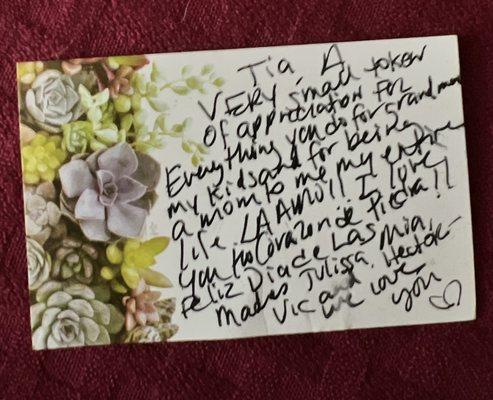 Tia, A
VERY small token
of appreciation for
Everything you do for grandma
my kids and for being
a mom to me my entire
life. LA AMO!! I love
you tio Corazon de Piedra!!
Feliz Dia de Las
Mades Julissa, Mia,
Vic and Hector
we love
you